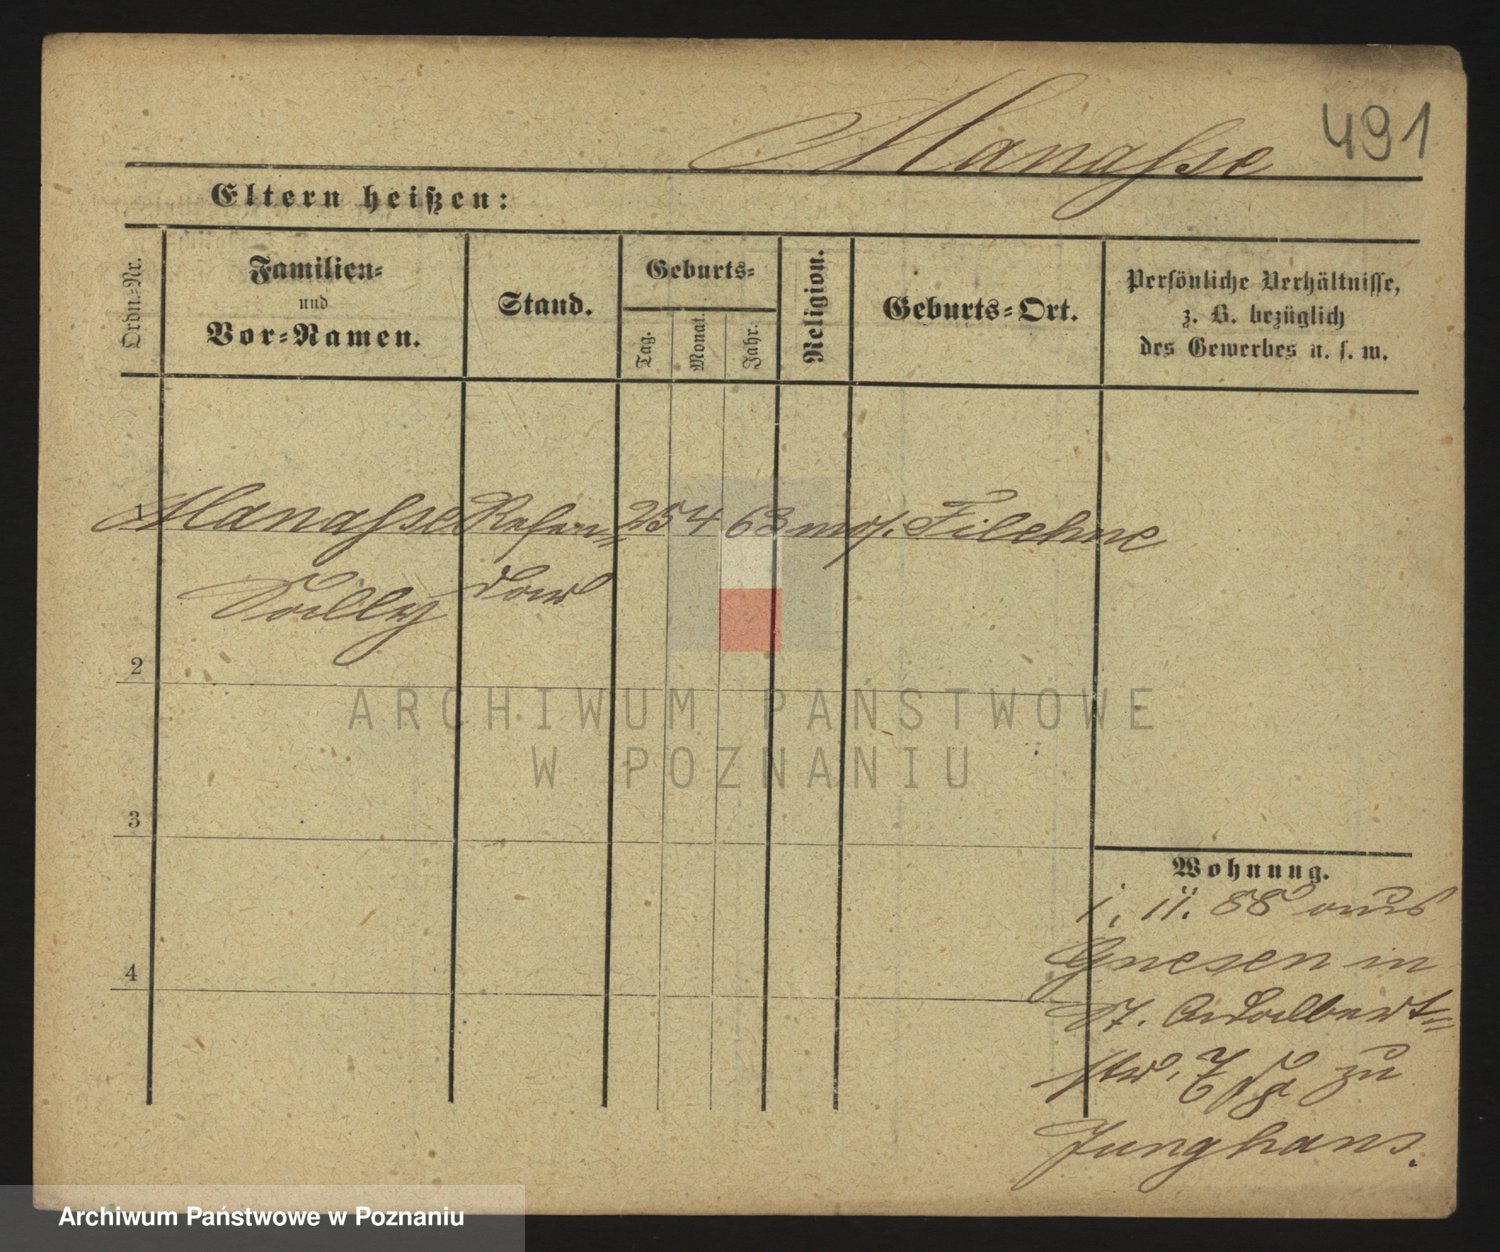 Manasse
491
Eltern heißen:
Ordn.-Nr.
Familien-
und
Vor-Namen.
Stand.
Geburts-
Tag.
Monat.
Jahr.
Religion.
Geburts-Ort.
Persönliche Verhältnisse,
z. B. bezüglich
des Gewerbes u. s. w.
1 Manasse Referen- 25 4 63 mos. Filehne
Sally dar
2
3
4
Wohnung.
88 aus
Gnesen in
St. Adalbert-
str. 7 zu
Junghans.
ARCHIWUM PAŃSTWOWE
W POZNANIU
Archiwum Państwowe w Poznaniu